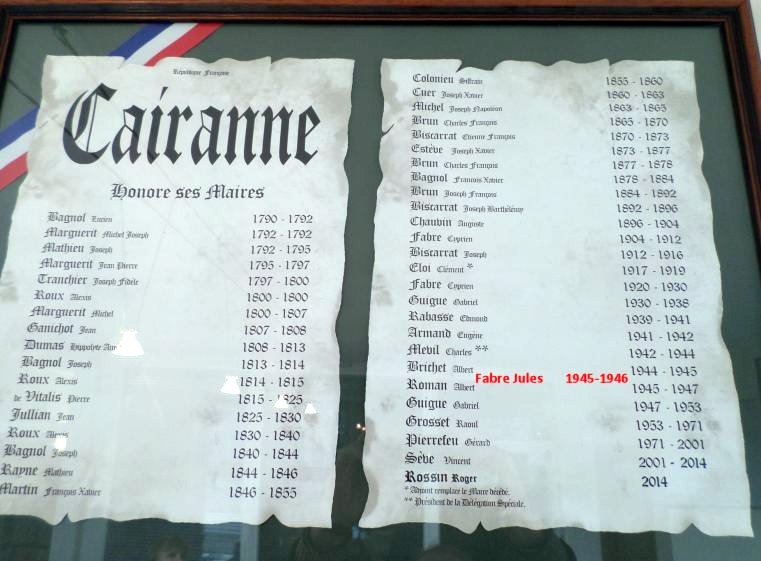 République Française
Cairanne
Honore ses Maires
Bagnol Lucien 1790 - 1792
Marguerit Michel Joseph 1792 - 1792
Mathieu Joseph 1792 - 1795
Marguerit Jean Pierre 1795 - 1797
Tranchier Joseph Fidèle 1797 - 1800
Roux Alexis 1800 - 1800
Marguerit Michel 1800 - 1807
Ganichot Jean 1807 - 1808
Dumas Hippolyte 1808 - 1813
Bagnol Joseph 1813 - 1814
Roux Alexis 1814 - 1815
de Vitalis Pierre 1815 - 1825
Jullian Jean 1825 - 1830
Roux Alexis 1830 - 1840
Bagnol Joseph 1840 - 1844
Rayne Mathieu 1844 - 1846
Martin François Xavier 1846 - 1855
Colonieu Siffrain 1855 - 1860
Cuer Joseph Xavier 1860 - 1863
Michel Joseph Napoléon 1863 - 1865
Brun Charles François 1865 - 1870
Biscarrat Etienne François 1870 - 1873
Estève Joseph Xavier 1873 - 1877
Brun Charles François 1877 - 1878
Bagnol François Xavier 1878 - 1884
Brun Joseph François 1884 - 1892
Biscarrat Joseph Barthélémy 1892 - 1896
Chauvin Auguste 1896 - 1904
Fabre Cyprien 1904 - 1912
Biscarrat Joseph 1912 - 1916
Eloi Clément * 1917 - 1919
Fabre Cyprien 1920 - 1930
Guigue Gabriel 1930 - 1938
Rabasse Edmond 1939 - 1941
Armand Eugène 1941 - 1942
Mévil Charles ** 1942 - 1944
Brichet Albert 1944 - 1945
Fabre Jules 1945-1946
Roman Albert 1945 - 1947
Guigue Gabriel 1947 - 1953
Grosset Raoul 1953 - 1971
Pierrefeu Gérard 1971 - 2001
Sève Vincent 2001 - 2014
Rossin Roger 2014
* Adjoint remplace le Maire décédé.
** Président de la Délégation Spéciale.